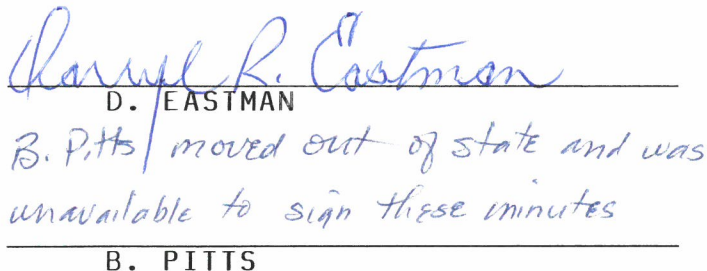 Darryl R. Eastman
D. EASTMAN
B. Pitts moved out of state and was
unavailable to sign these minutes
B. PITTS